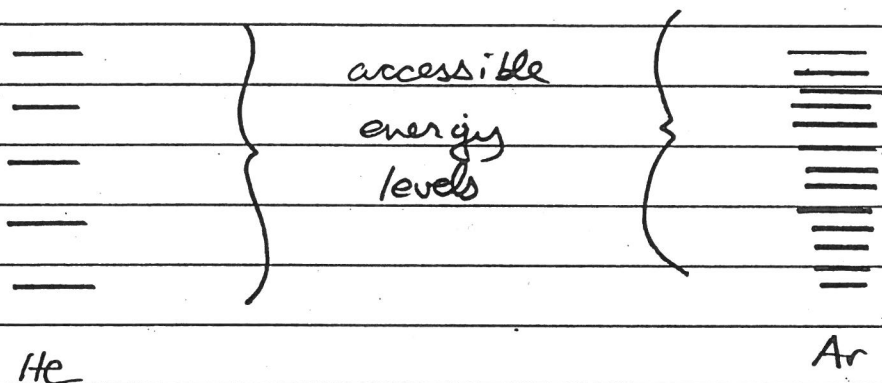 accessible
energy
levels
He
Ar